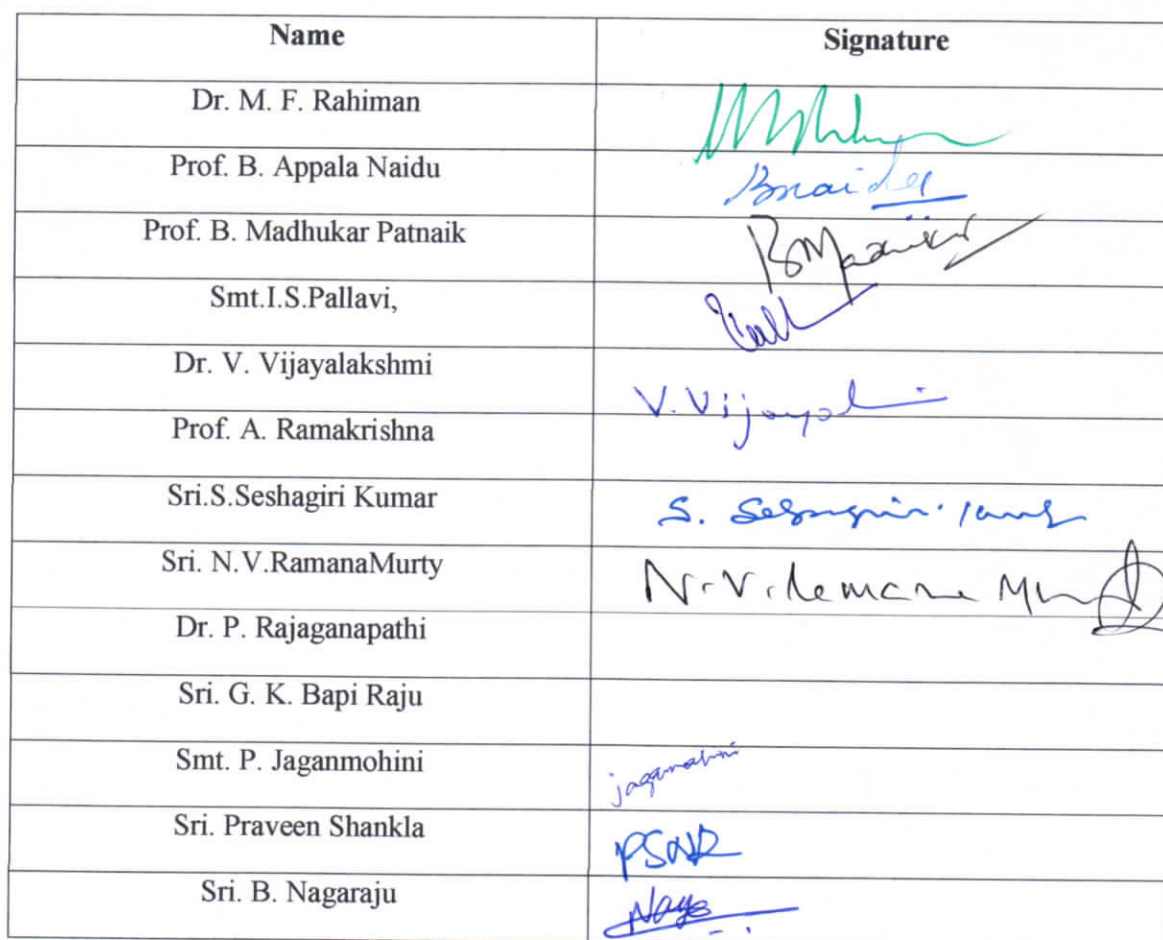 Name Signature
Dr. M. F. Rahiman
Prof. B. Appala Naidu Bnaidu
Prof. B. Madhukar Patnaik
Smt.I.S.Pallavi,
Dr. V. Vijayalakshmi V. Vijayal
Prof. A. Ramakrishna
Sri.S.Seshagiri Kumar S.
Sri. N.V.RamanaMurty N.V.
Dr. P. Rajaganapathi
Sri. G. K. Bapi Raju
Smt. P. Jaganmohini jaganmohini
Sri. Praveen Shankla
Sri. B. Nagaraju